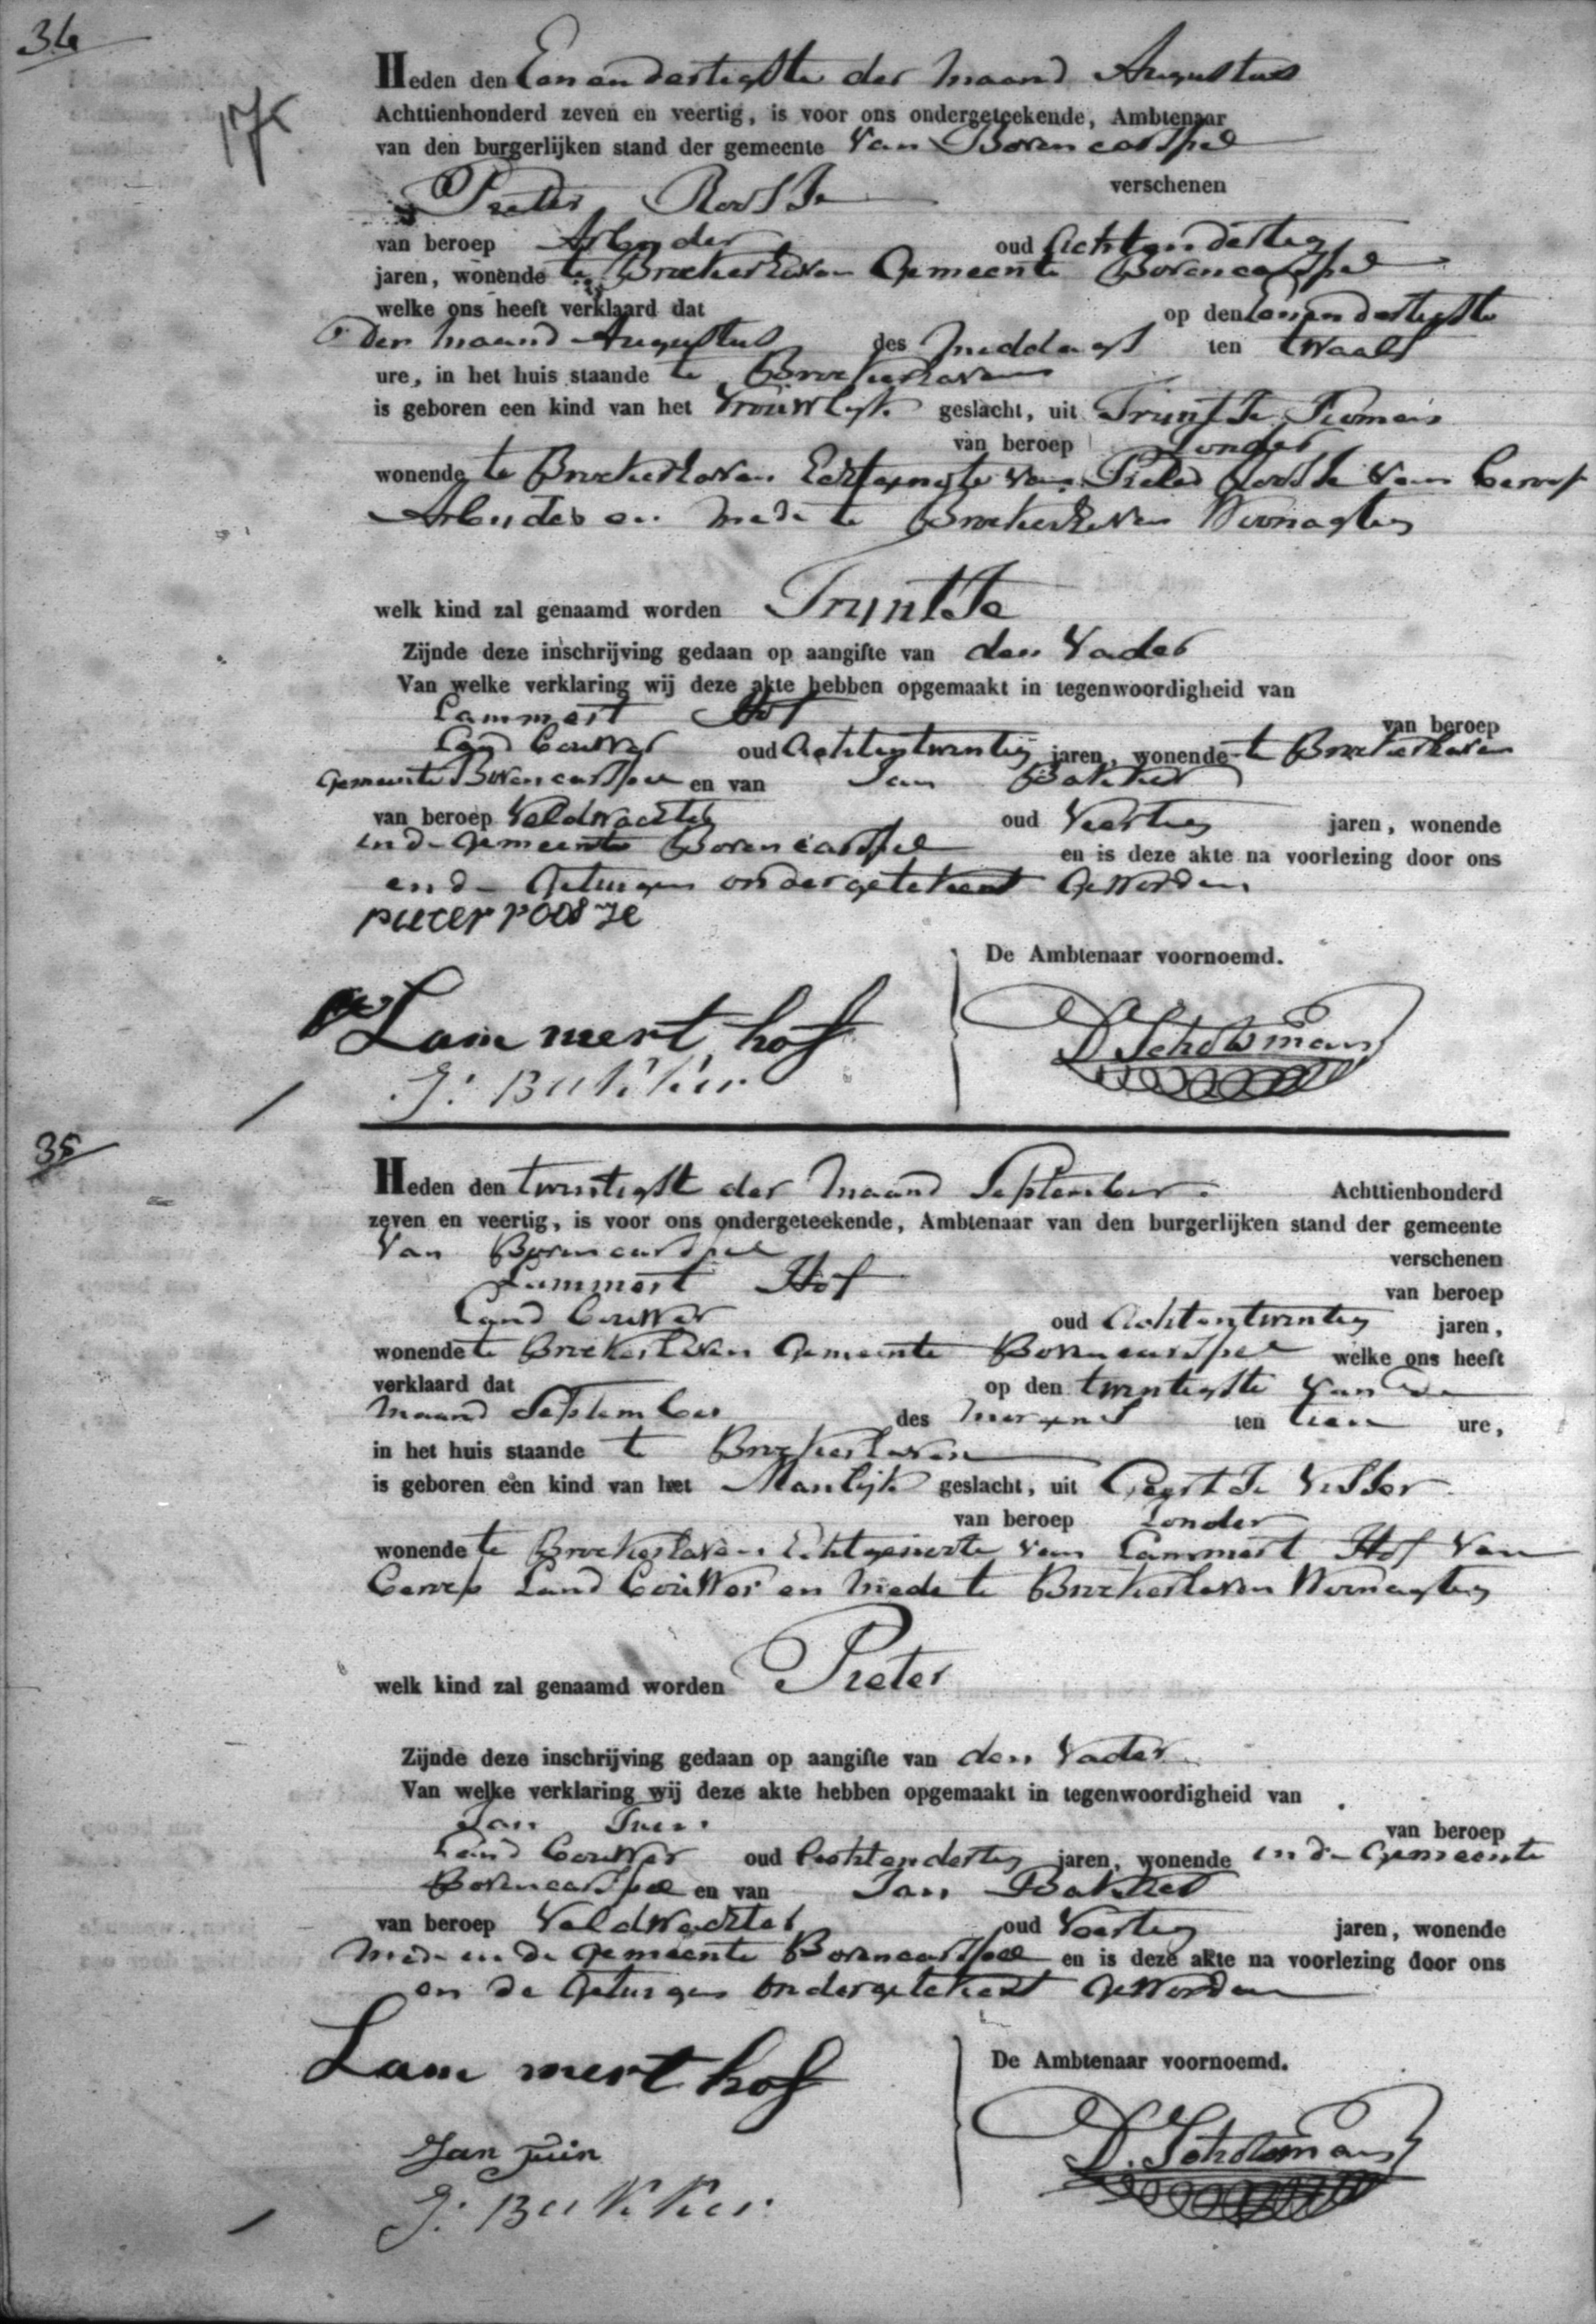 34
175
Heden den Een en dertigste der Maand Augustus
Achttienhonderd zeven en veertig, is voor ons ondergeteekende, Ambtenaar
van den burgerlijken stand der gemeente Van Bovencarspel
verschenen
Pieter Roosje
van beroep Arbyder oud Acht en dertig
jaren, wonende te Broekerhaven Gemeente Bovencarspel
welke ons heeft verklaard dat op den Een en dertigste
der Maand Augustus des Middags ten twaalf
ure, in het huis staande te Broekerhaven
is geboren een kind van het Vrouwlyk geslacht, uit Tryntje
van beroep Zonder
wonende te Broekerhaven Echtgenote van Pieter Roosje van beroep
Arbyder en mede te Broekerhaven Woonagtig
welk kind zal genaamd worden Tryntje
Zijnde deze inschrijving gedaan op aangifte van den Vader
Van welke verklaring wij deze akte hebben opgemaakt in tegenwoordigheid van
Lammert Hof van beroep
Land bouwer oud Achtentwintig jaren, wonende te Broekerhaven
Gemeente Bovencarspel en van Jan Bakker
van beroep Veldwachter oud Veertig jaren, wonende
in de Gemeente Bovencarspel en is deze akte na voorlezing door ons
en de Getuigen ondergetekent Geworden
pieter roosje
De Ambtenaar voornoemd.
Lam mert hof
D Schotsman
J: Bakker
35
Heden den twintigste der Maand September Achttienhonderd
zeven en veertig, is voor ons ondergeteekende, Ambtenaar van den burgerlijken stand der gemeente
Van Bovencarspel verschenen
Lammert Hof van beroep
Land bouwer oud Achtentwintig jaren,
wonende te Broekerhaven Gemeente Bovencarspel welke ons heeft
verklaard dat op den twintigste van de
Maand September des morgens ten tien ure,
in het huis staande te Broekerhaven
is geboren een kind van het Manlijk geslacht, uit Geertje Visser
van beroep Zonder
wonende te Broekerhaven Echtgenote van Lammert Hof van
beroep Land bouwer en mede te Broekerhaven Woonagtig
welk kind zal genaamd worden Pieter
Zijnde deze inschrijving gedaan op aangifte van den Vader
Van welke verklaring wij deze akte hebben opgemaakt in tegenwoordigheid van
Jan Tuin van beroep
Land bouwer oud Acht en dertig jaren, wonende in de Gemeente
Bovencarspel en van Jan Bakker
van beroep Veldwachter oud Veertig jaren, wonende
mede in de Gemeente Bovencarspel en is deze akte na voorlezing door ons
en de Getuigen ondergetekent Geworden
De Ambtenaar voornoemd.
Lam mert hof
D. Schotsman
Jan Tuin
J: Bakker